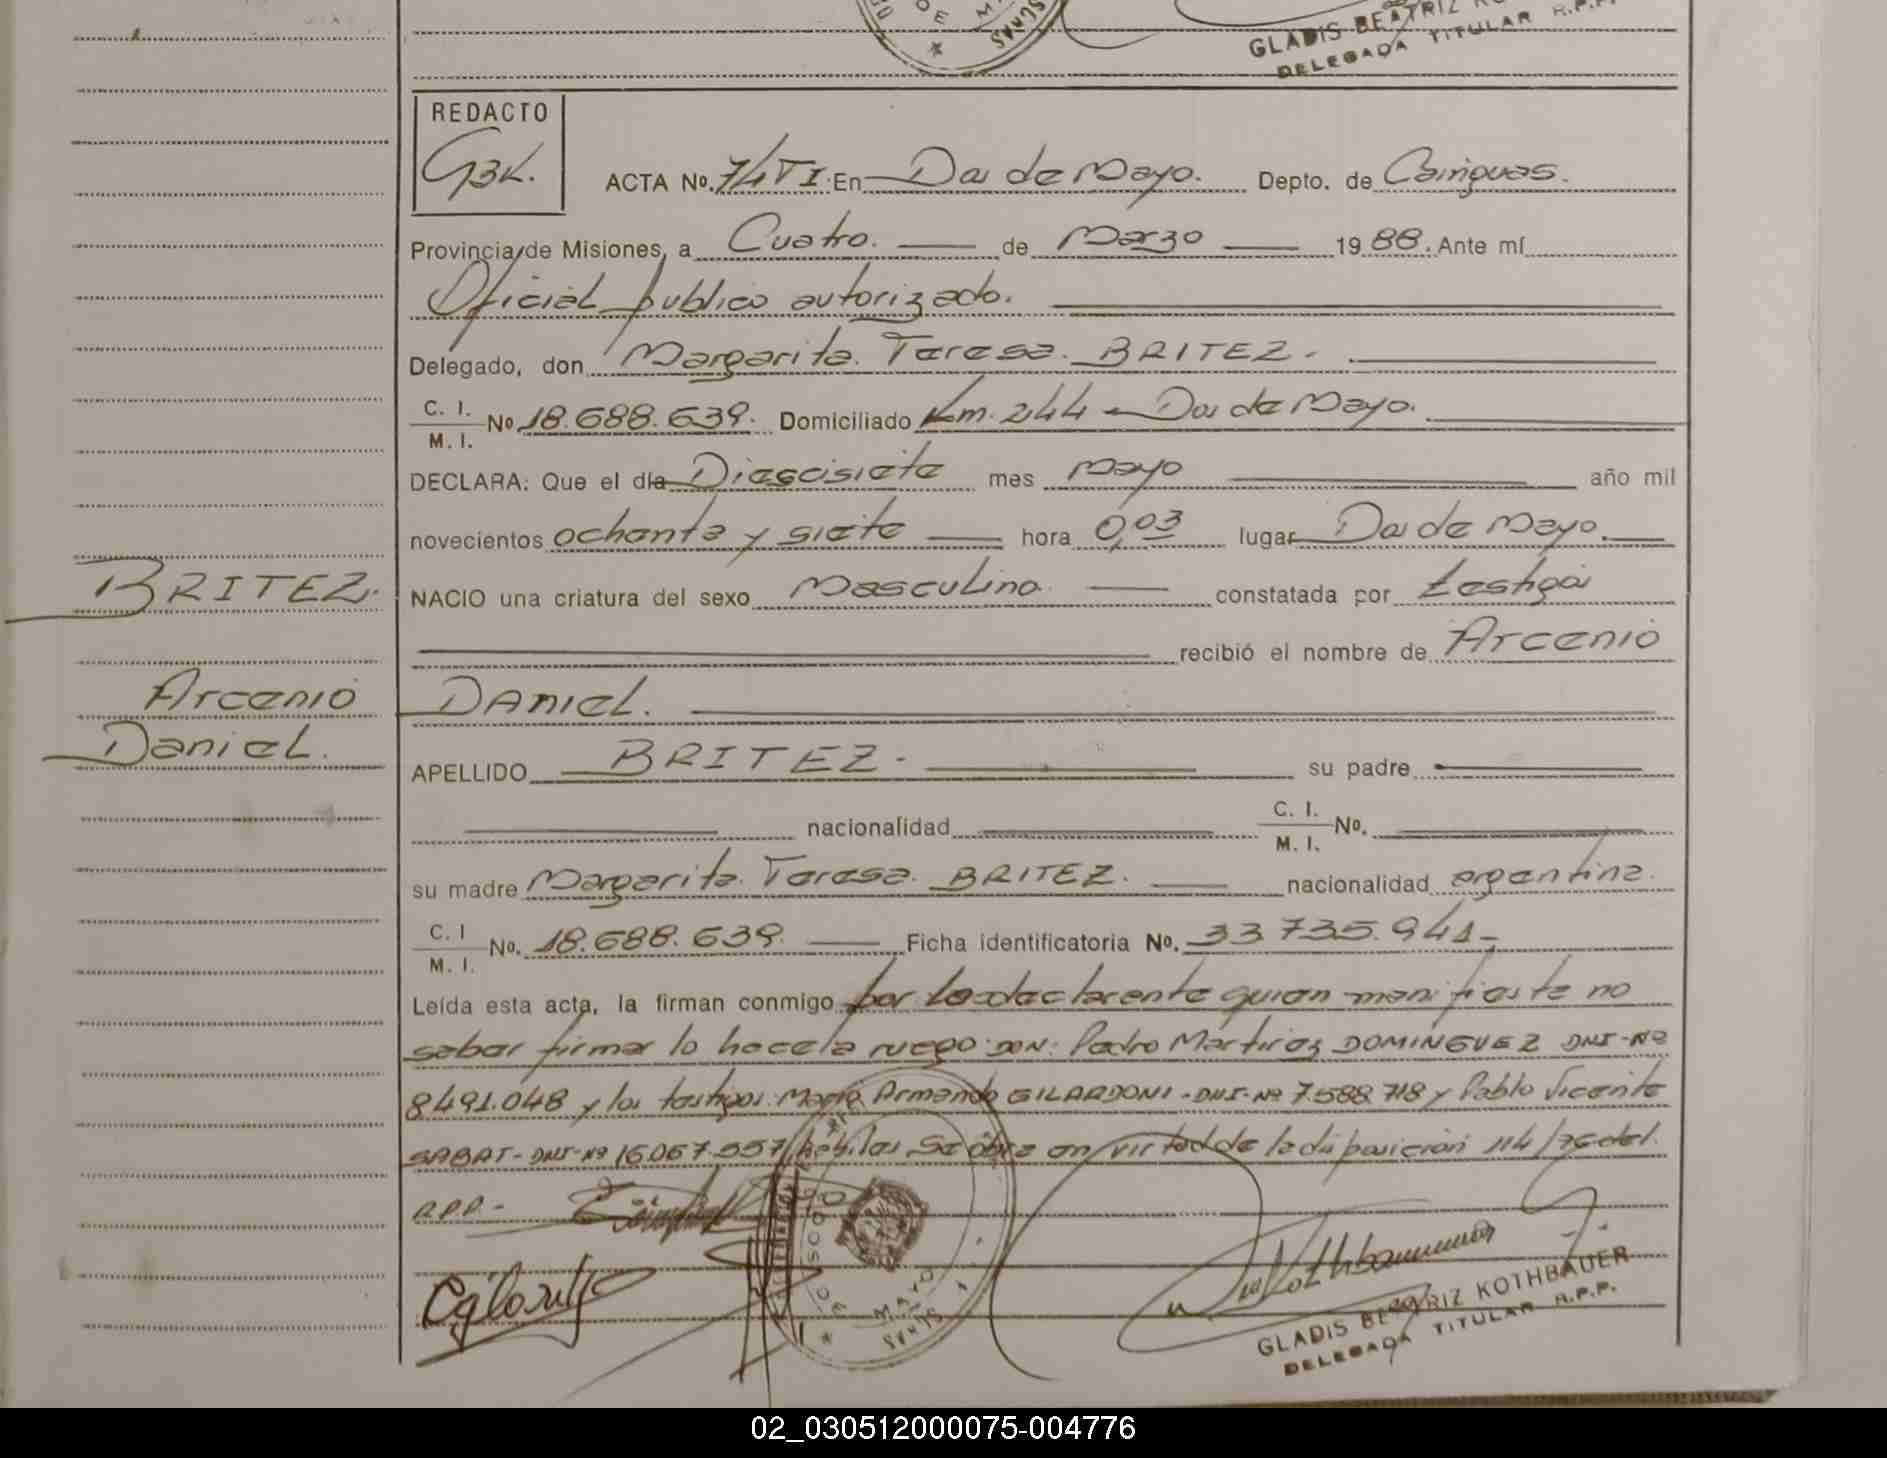 GLADIS BEATRIZ
DELEGADA TITULAR R.P.P.
REDACTO
GBK.
ACTA No. 74 TI En Dos de Mayo. Depto. de Cainguas.
Provincia de Misiones, a Cuatro. de Marzo 1988. Ante mí
Oficial publico autorizado.
Delegado, don Margarita Teresa BRITEZ.
C. I.
M. I. No 18.688.639. Domiciliado Km. 244 - Dos de Mayo.
DECLARA: Que el día Diescisiete mes Mayo año mil
novecientos ochenta y siete hora 0,03 lugar Dos de Mayo.
BRITEZ.
NACIO una criatura del sexo Masculino constatada por testigos
recibió el nombre de Arcenio
Arcenio
Daniel.
DANIEL.
APELLIDO BRITEZ. su padre
nacionalidad C. I. M. I. No.
su madre Margarita Teresa BRITEZ. nacionalidad argentina.
C. I M. I. No. 18.688.639. Ficha identificatoria No. 33 735.941-
Leída esta acta, la firman conmigo por declarente quien manifieste no
saber firmar lo hace a ruego DON: Pedro Martirez DOMINGUEZ DNI-Nº
8491.048 y los testigos: Armando GILARDONI-DNI-Nº 7.588.718 y Pablo Vicente
SABAT-DNI-Nº 16.067.557 hábiles Se obra en virtud de la disposición 114/76 del
R.P.P.-
DE MAYO
GLADIS BEATRIZ KOTHBAUER
DELEGADA TITULAR R.P.P.
02_030512000075-004776